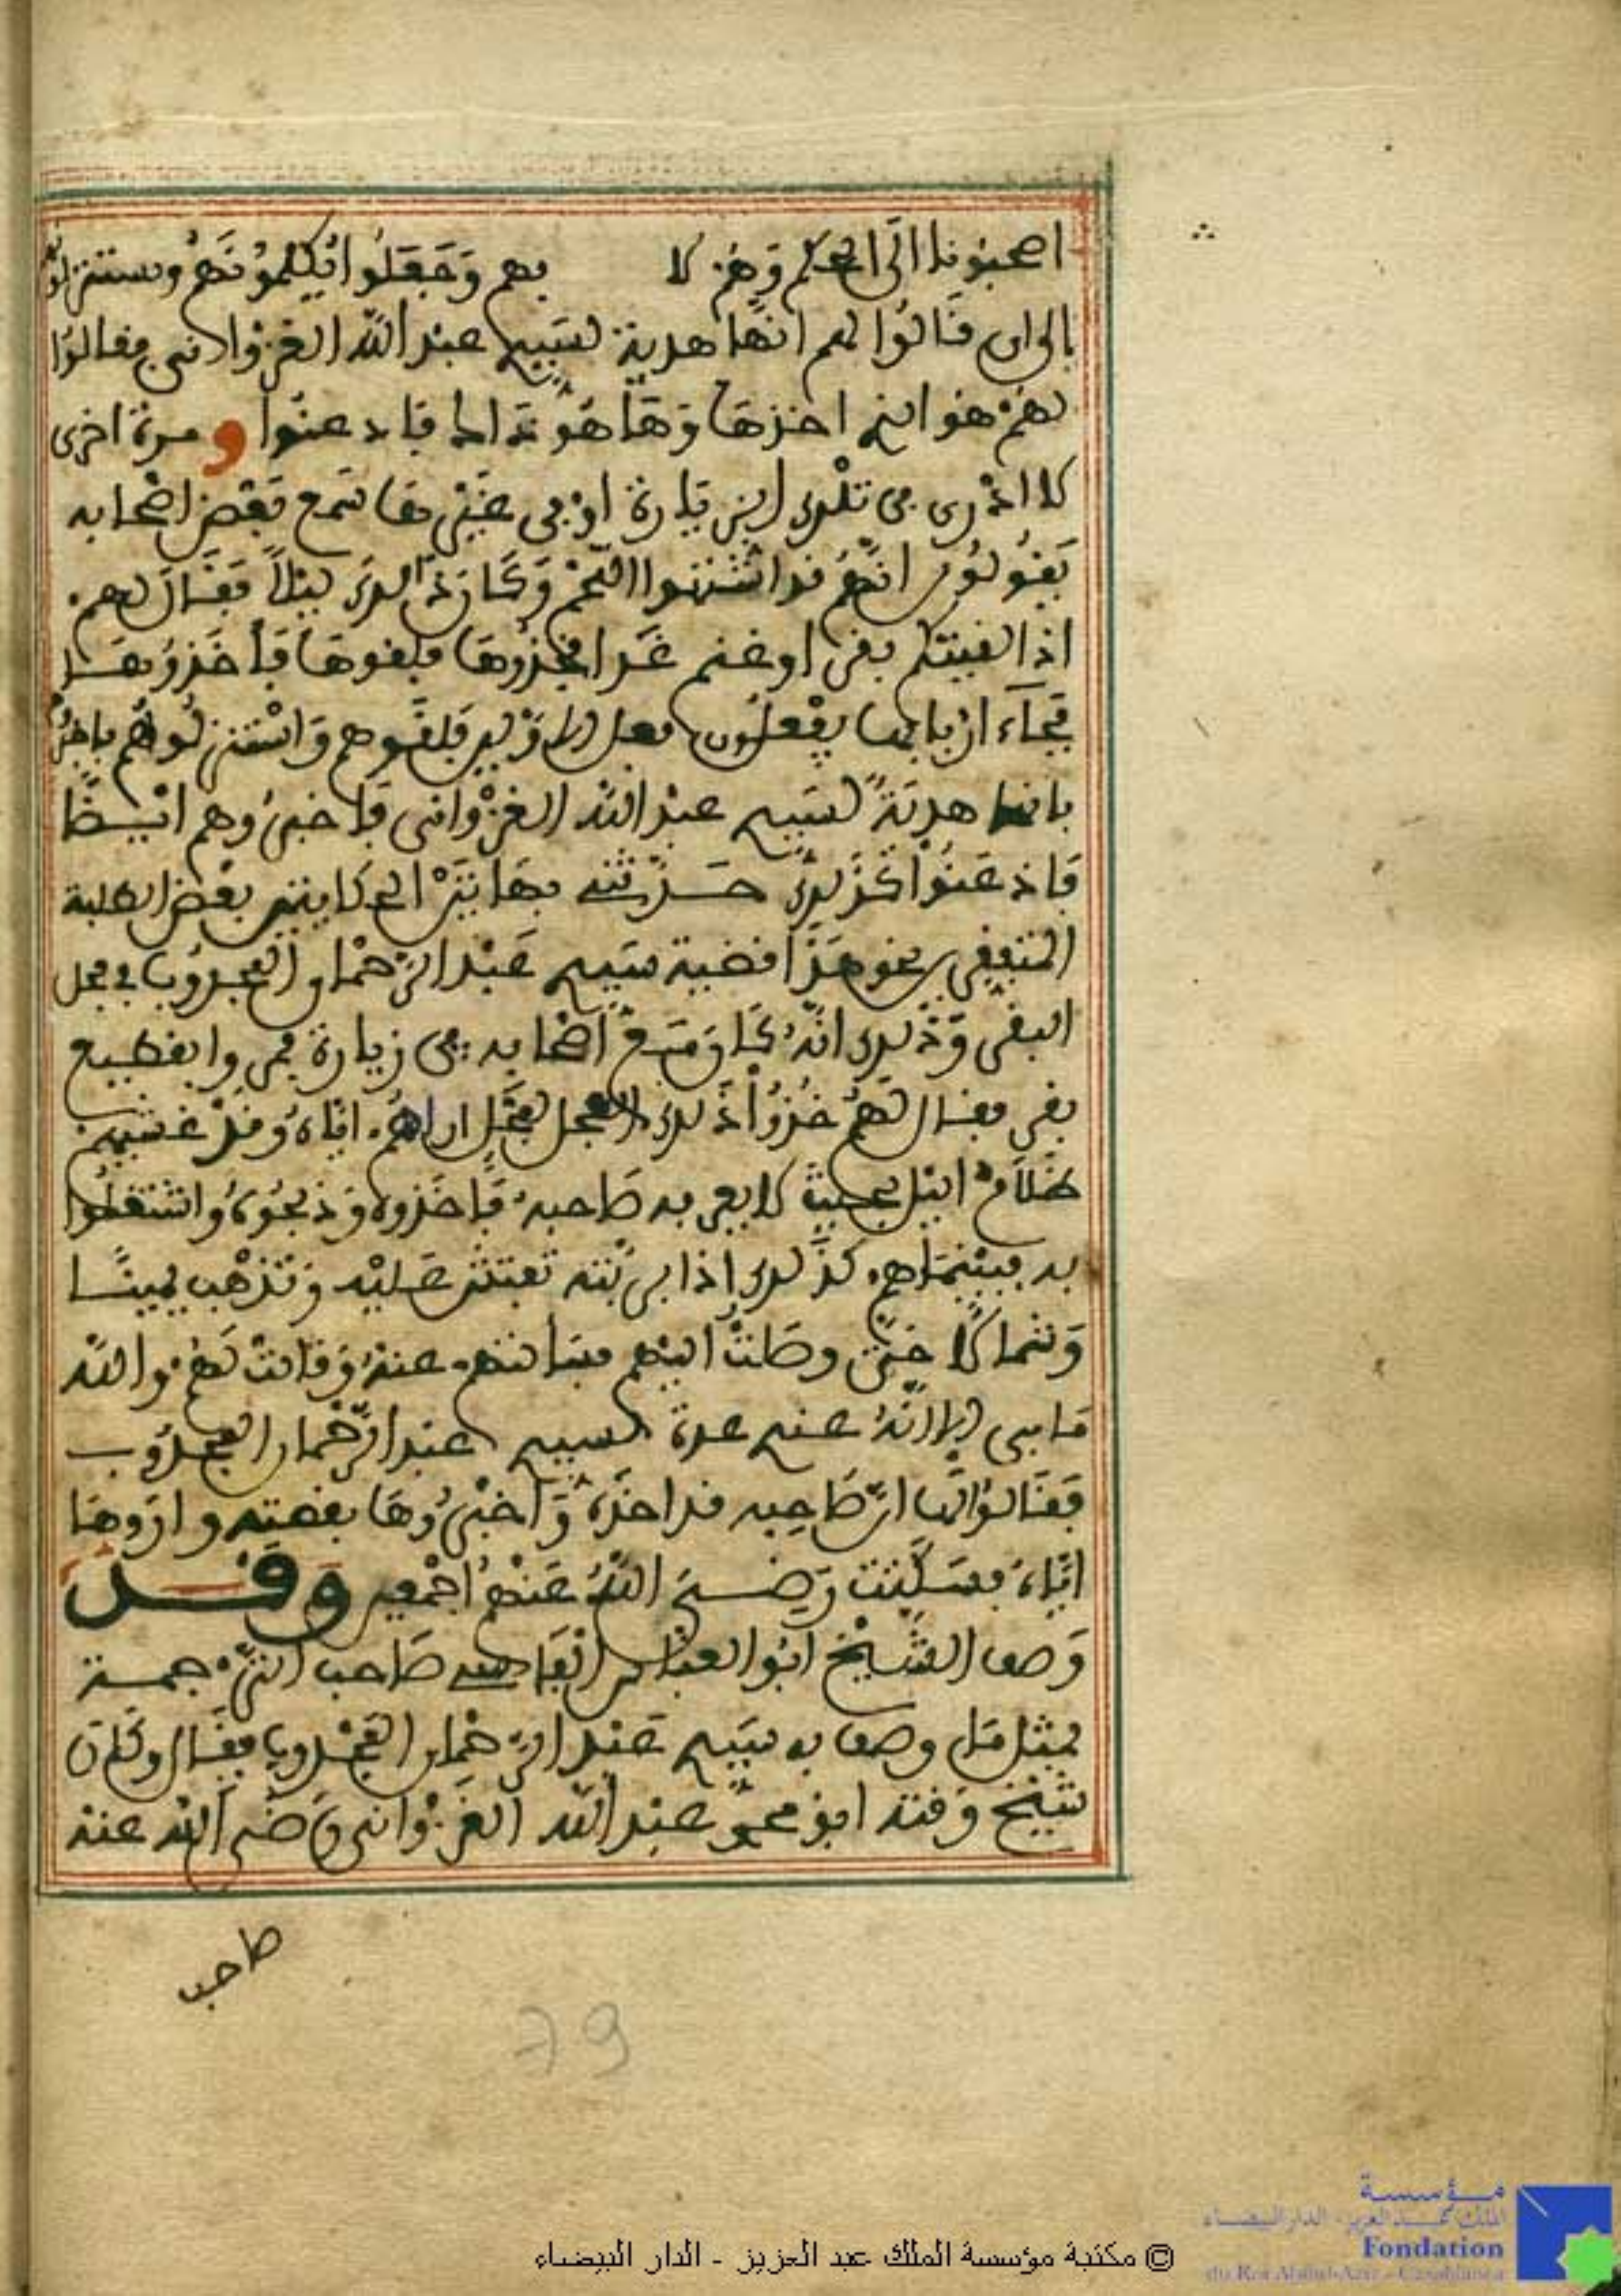 اصحبونا الى الحكم وهم لا بهم وجعلوا يكلمونهم ويستنزلونهم
الى ان قالوا لهم انها هدية لسيدي عبد الله الغزواني فقالوا
لهم هو الذي اخذها وها هو ذا فاذعنوا ومرة اخرى
لا ادري في تلك الزيارة او في غيرها سمع بعض اصحابه
يقولون انهم قد اشتهوا اللحم وكان ذلك ليلا فقال لهم
اذا لقيتكم بقر او غنم غدا فخذوها فلقوها فاخذوها
فجاء اربابها يفعلون فعل الاولين فلقوهم واستنزلوهم
بانها هدية لسيدي عبد الله الغزواني فاخبروهم ايضا
فاذعنوا كذلك حدثني بها بعض الطلبة
المتفقين نحو هذا قضية سيدي عبد الرحمان المجذوب في عجل
البقر وذلك انه كان مع اصحابه في زيارة فمروا بقطيع
بقر فقال لهم خذوا ذلك العجل لعجل اراهم اياه وقد غشيهم
ظلام الليل بحيث لا يعرفه صاحبه فاخذوه وذبحوه واشتغلوا
به فبينما هم كذلك اذا بربته تفتش عليه وتذهب يمينا
وشمالا حتى وصلت اليهم فسالتهم عنه وقالت لهم والله
ما بي الا انه عندي عدة لسيدي عبد الرحمان المجذوب
فقالوا لها ان صاحبه قد اخذه واخبروها بقصته واروها
اياه فسكنت رضي الله عنهم اجمعين وقد
وصف الشيخ ابو العباس الفاسي صاحب الترجمة
بمثل ما وصف به سيدي عبد الرحمان المجذوب فقال وكان
شيخ وقته ابو محمد عبد الله الغزواني رضي الله عنه
صاحب
79
© مكتبة مؤسسة الملك عبد العزيز - الدار البيضاء
مؤسسة
الملك عبد العزيز - الدار البيضاء
Fondation
du Roi Abdul-Aziz - Casablanca